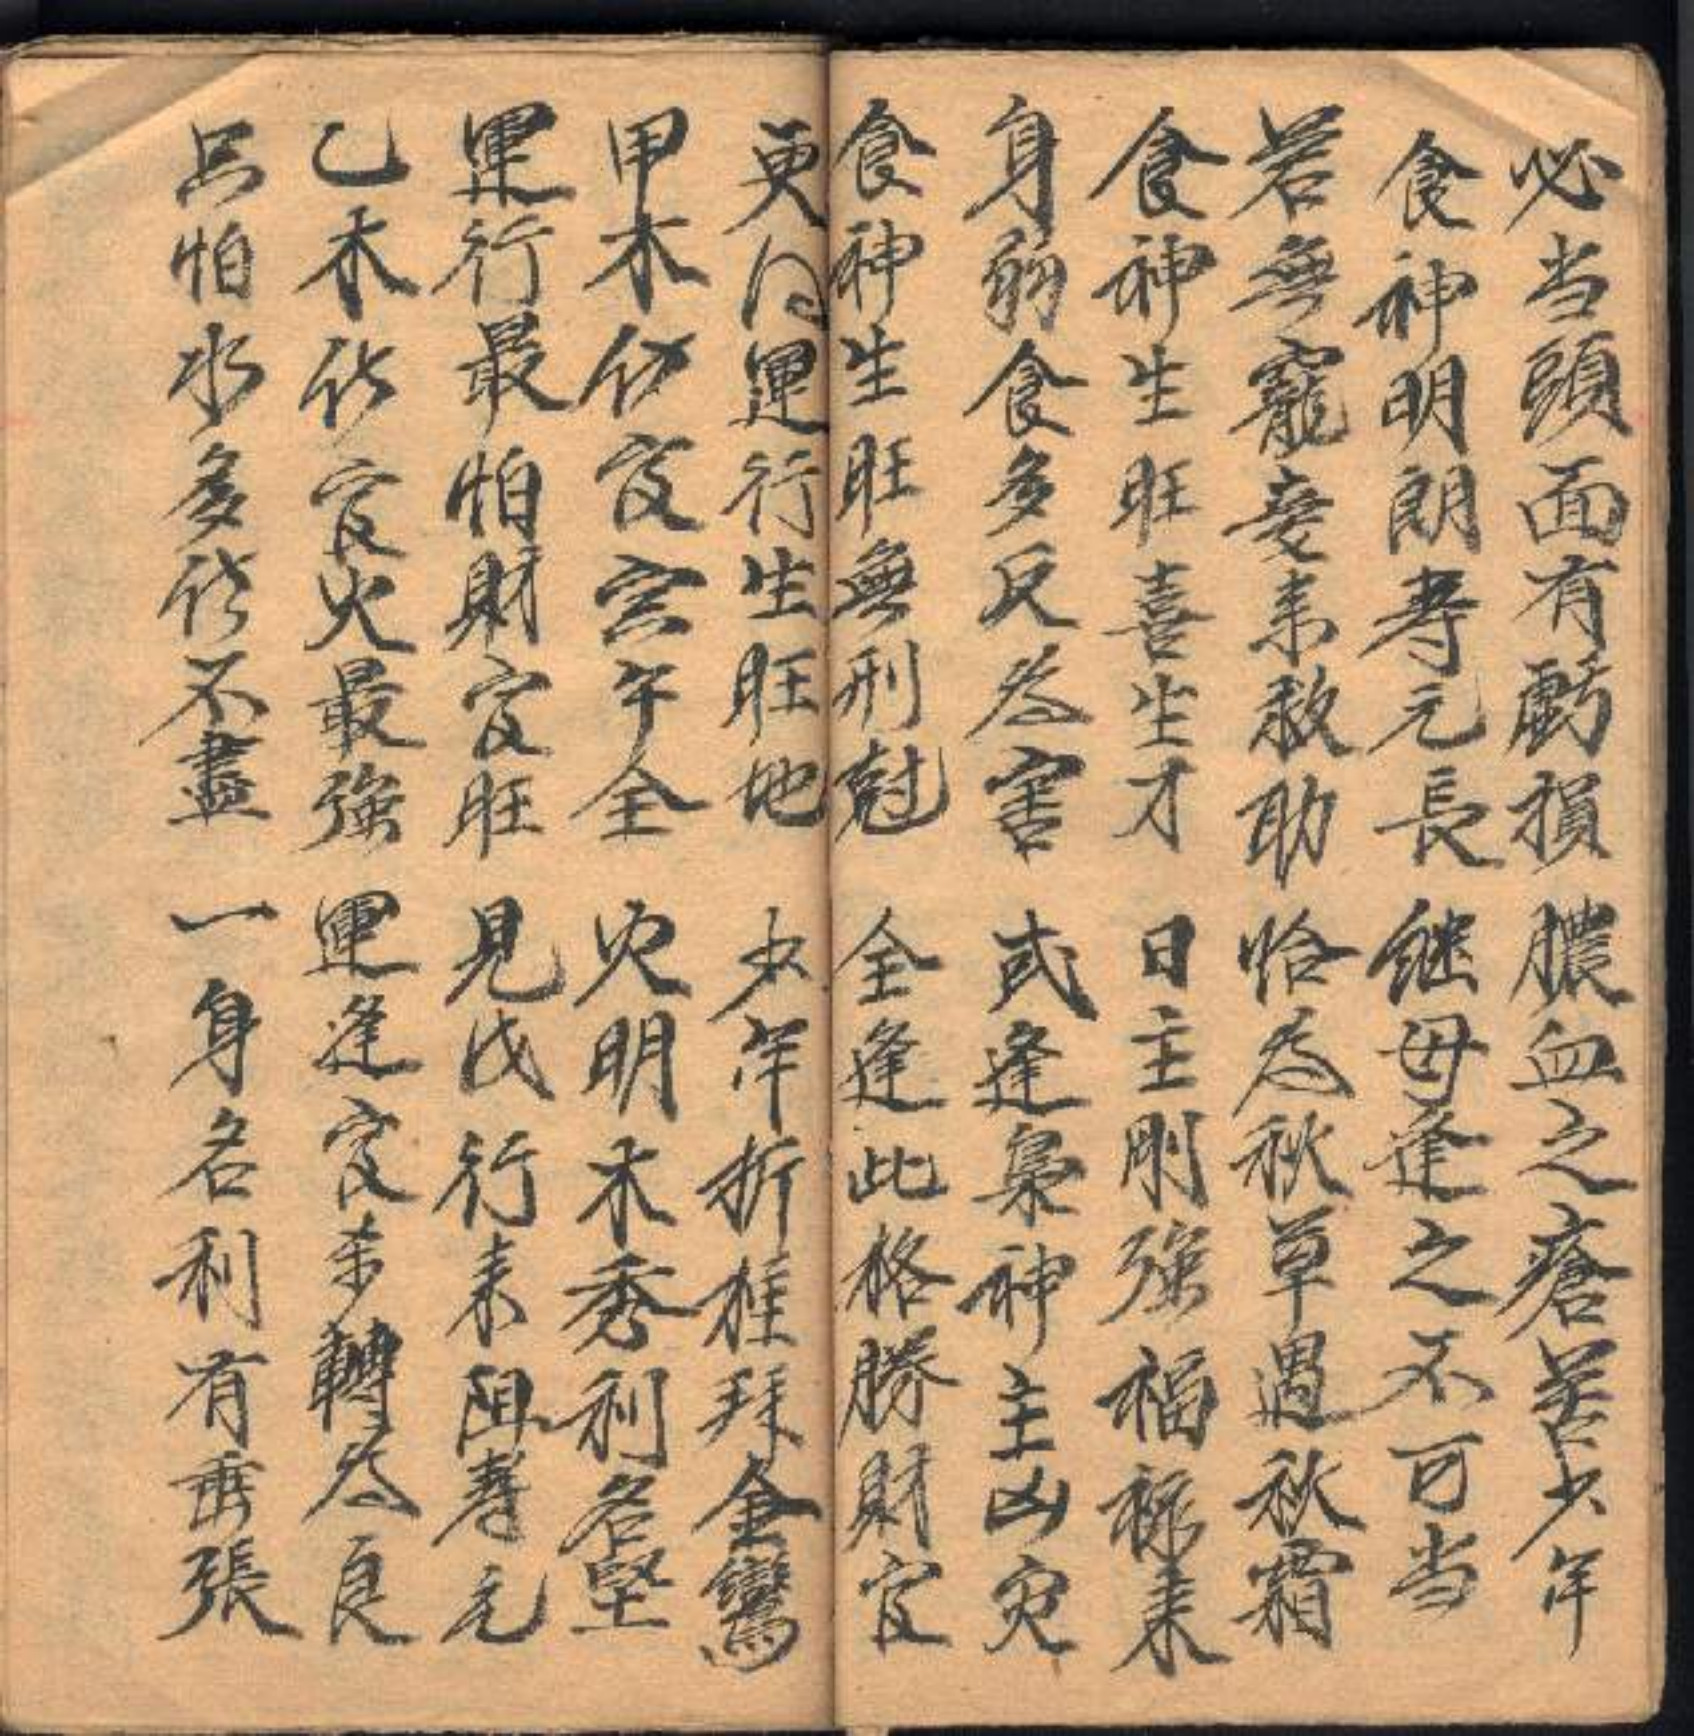 必当頭面有虧損 膿血之瘡苦少年
食神明朗寿元長 継母逢之不可当
若無寵妾来救助 恰為秋草遇秋霜
食神生旺喜生才 日主剛強福祿来
身弱食多反為害 或逢梟神主凶灾
食神生旺無刑尅 全逢此格勝財官
更 運行生旺地 少年折桂拜金鸞
甲木 官寅午全 火明木秀利名堅
運行最怕財官旺 見戊行来阻寿元
乙木 官火最強 運逢官杀轉為良
只怕水多 不盡 一身名利有 張